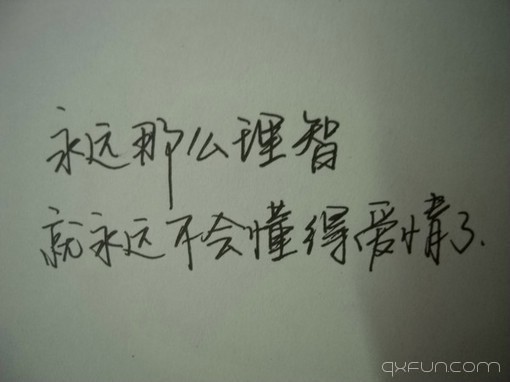 永远那么理智
就永远不会懂得爱情了.
qxfun.com